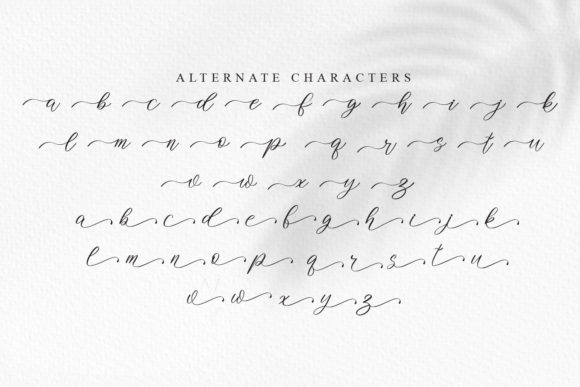 ALTERNATE CHARACTERS
a b c d e f g h i j k
l m n o p q r s t u
v w x y z
a b c d e f g h i j k
l m n o p q r s t u
v w x y z